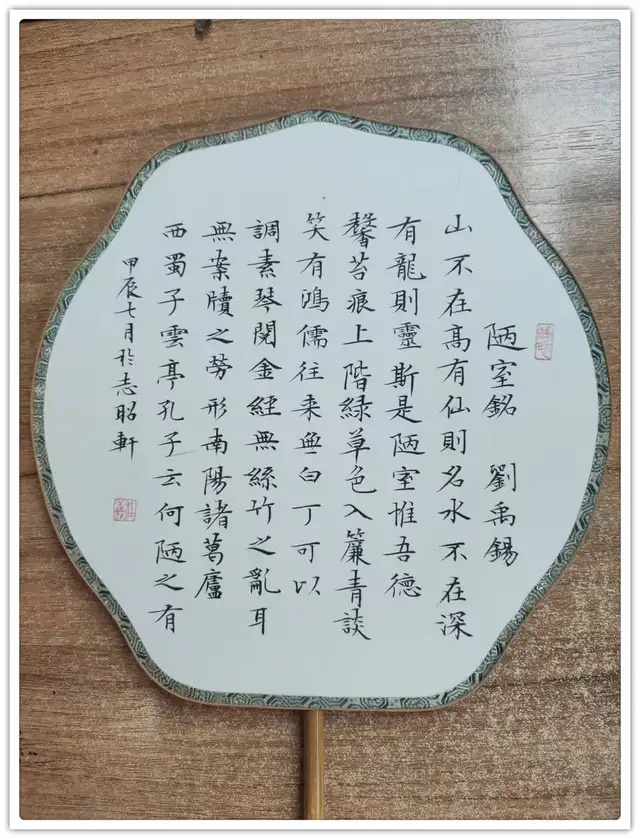 陋室銘 劉禹錫
山不在髙有仙則名水不在深
有龍則靈斯是陋室惟吾德
馨苔痕上階緑草色入簾青談
笑有鴻儒往来無白丁可以
調素琴閱金經無絲竹之亂耳
無案牘之勞形南陽諸葛廬
西蜀子雲亭孔子云何陋之有
甲辰七月於志昭軒